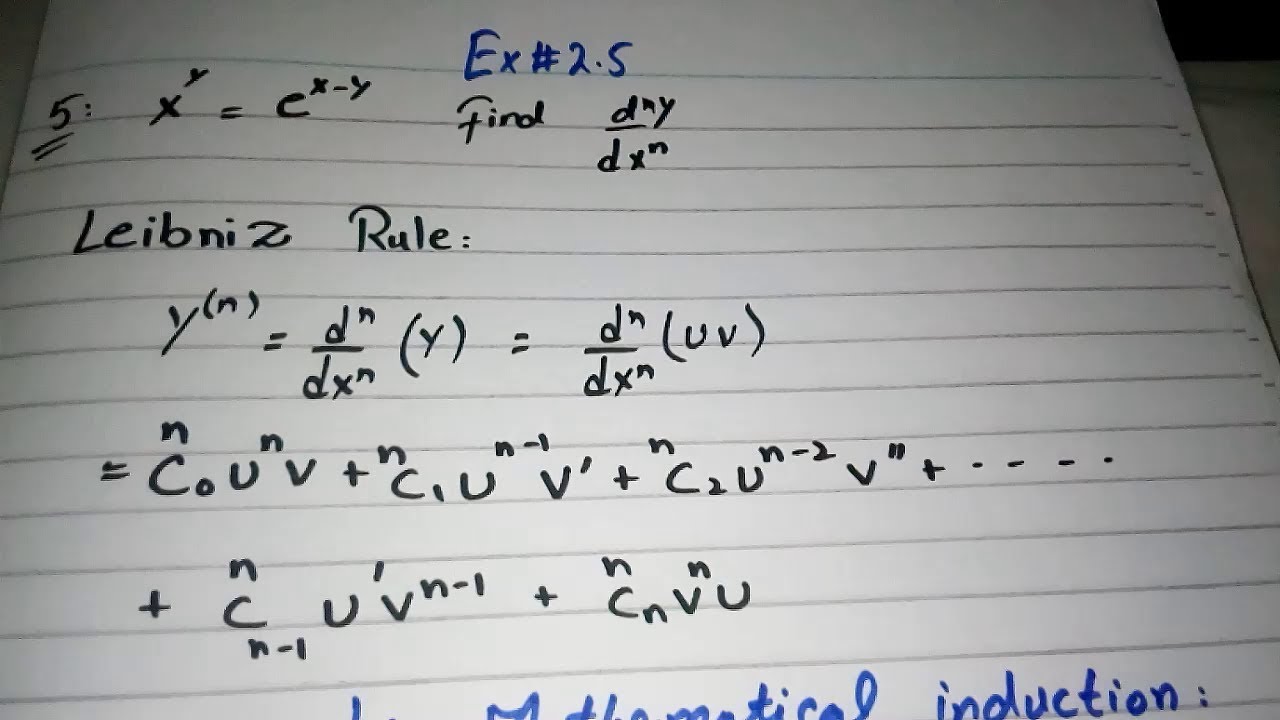 Ex#2.5
5: x^y = e^{x-y} Find d^n y / dx^n
Leibniz Rule:
y^{(n)} = d^n/dx^n (y) = d^n/dx^n (UV)
= ^nC_0 U^n V + ^nC_1 U^{n-1} V' + ^nC_2 U^{n-2} V'' + - - - -
+ ^nC_{n-1} U' V^{n-1} + ^nC_n V^n U
Mathematical induction: